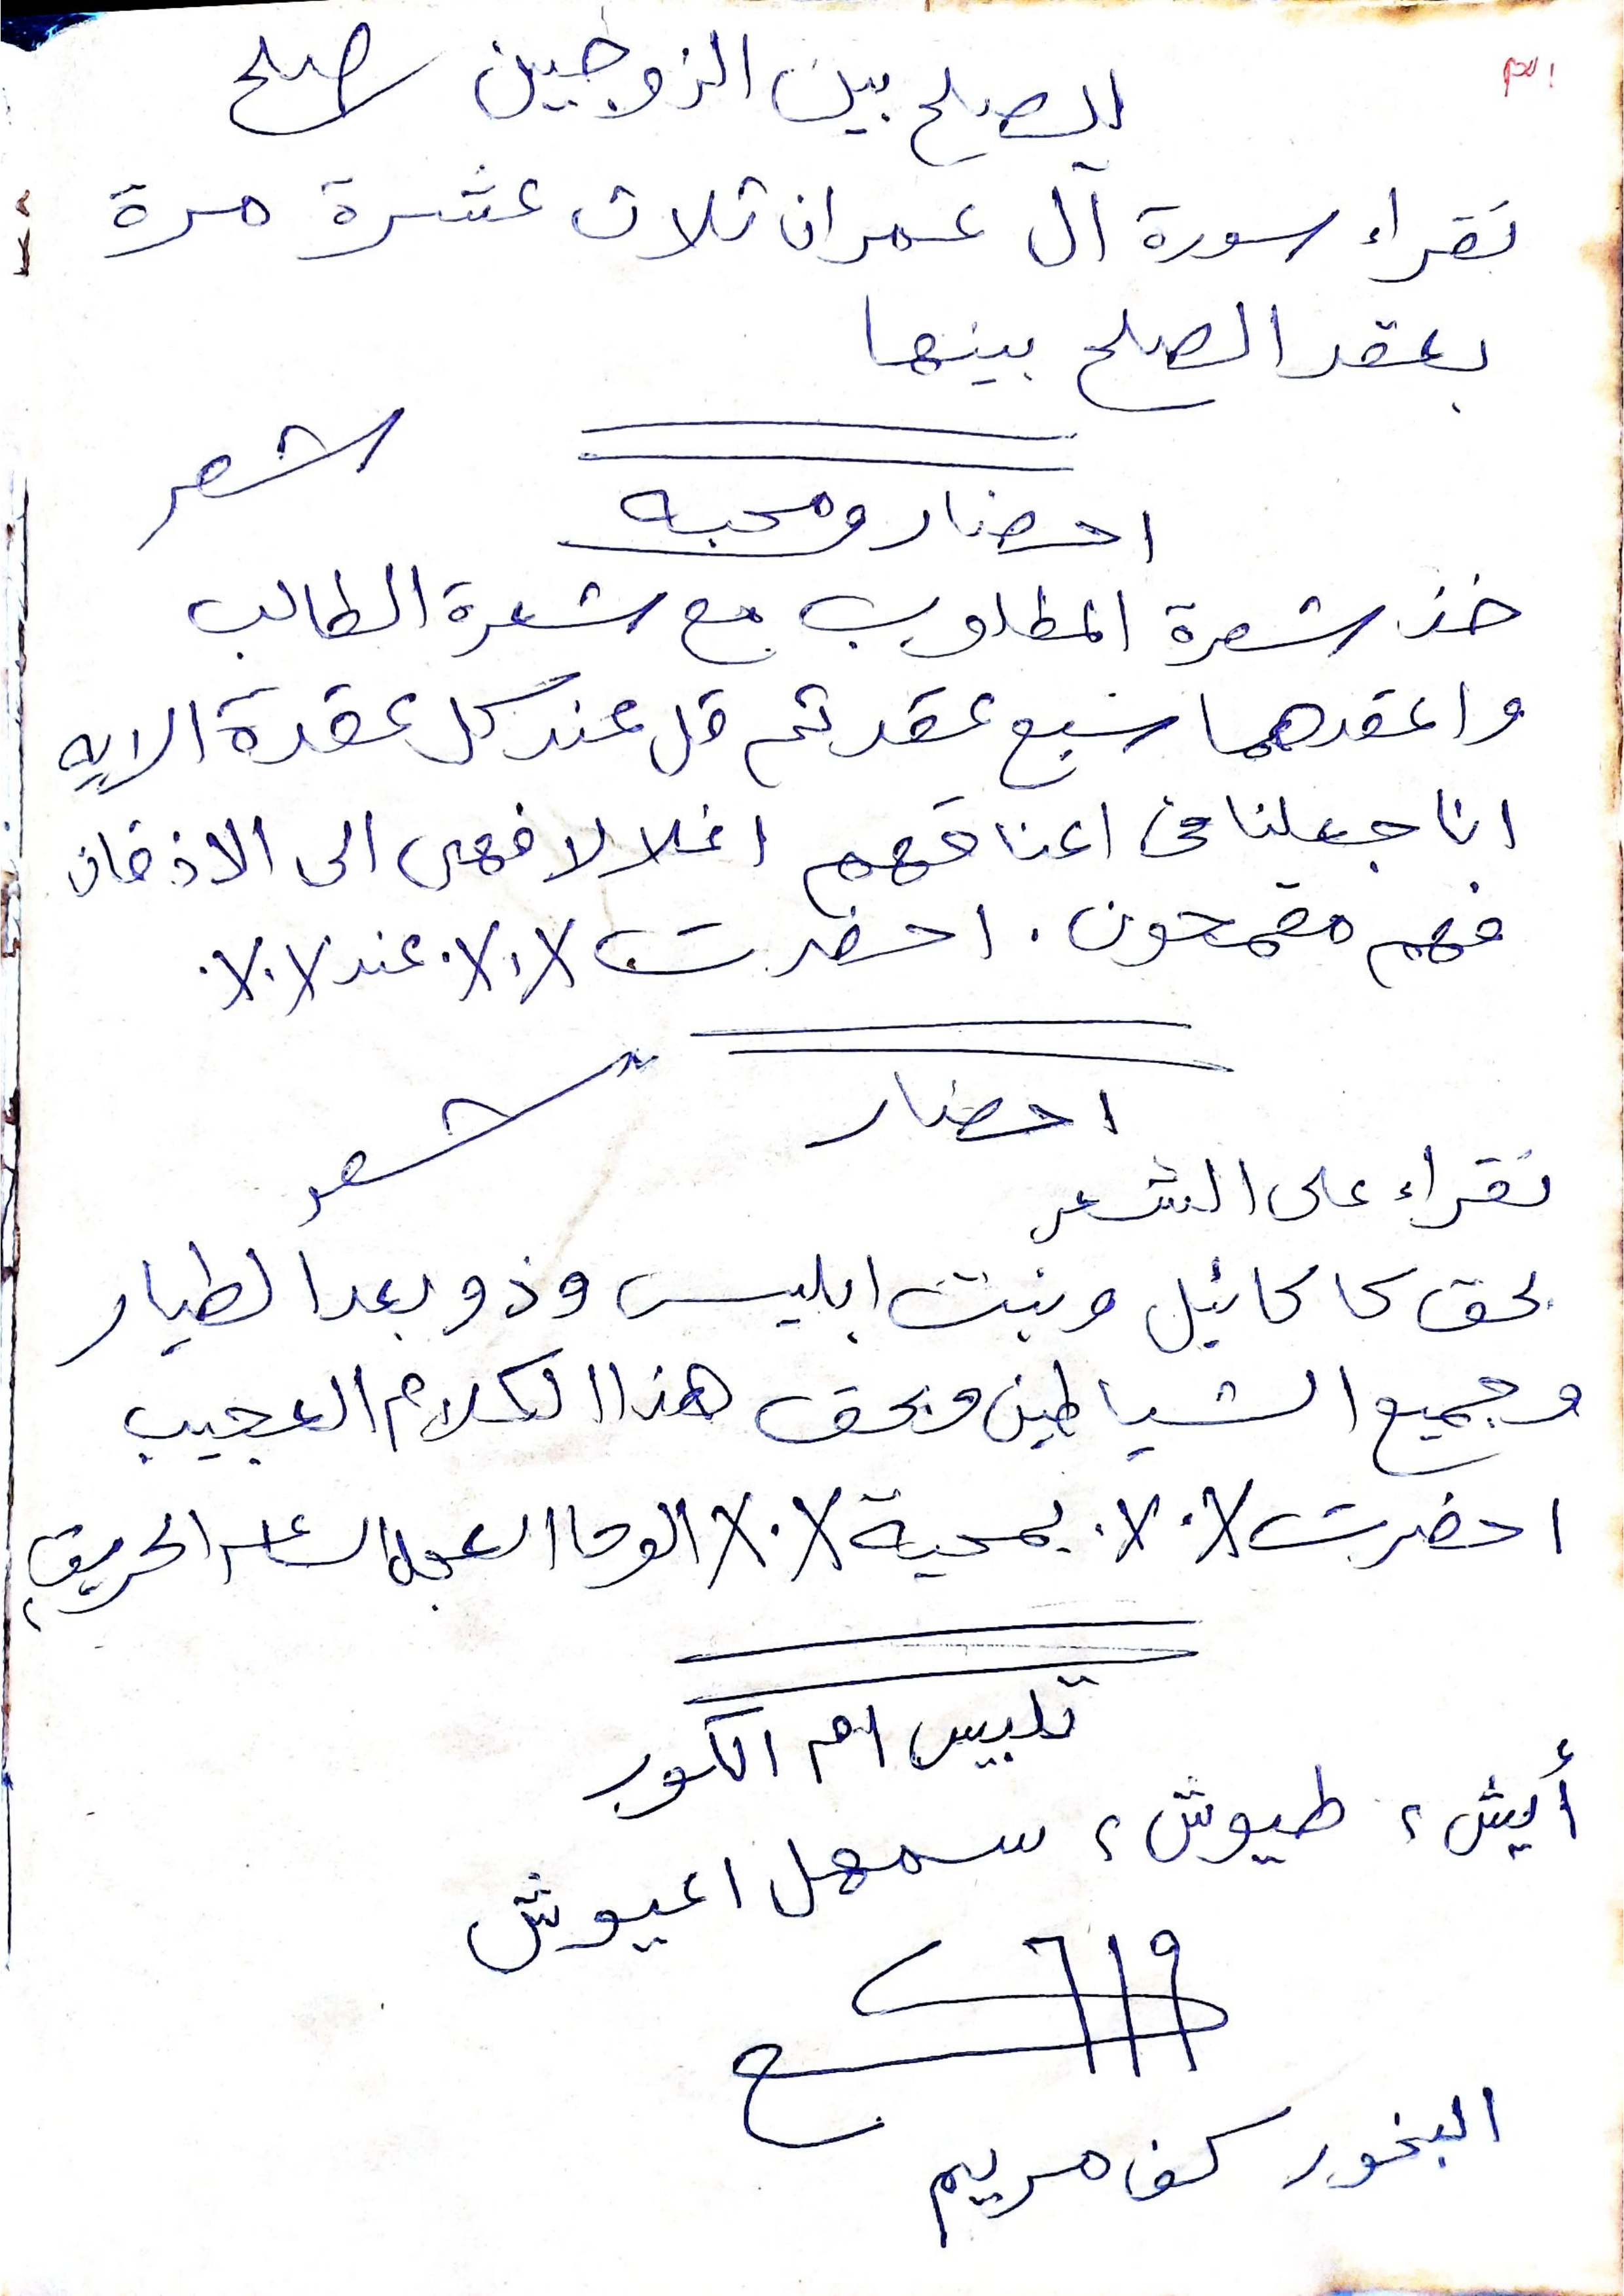 الصلح بين الزوجين صلح
تقراء سورة آل عمران ثلاث عشرة مرة
بعقد الصلح بينها
شعر
احضار ومحبه
خذ شعرة المطلوب مع شعرة الطالب
واعقدهما سبع عقد ثم قل عند كل عقدة الايه
انا جعلنا في اعناقهم اغلالا فهى الى الاذقان
فهم مقمحون . احضرت عند
احضار
شعر
تقراء على الشعر
بحق كاكائيل وبنت ابليس وذوبعد الطيار
وجميع الشياطين وبحق هذا الكلام العجيب
احضرت بمحبة الوحا العجل الحريق
تلبيس ام الكور
أيش ، طيوش ، سمهل اعيوش
البخور كف مريم